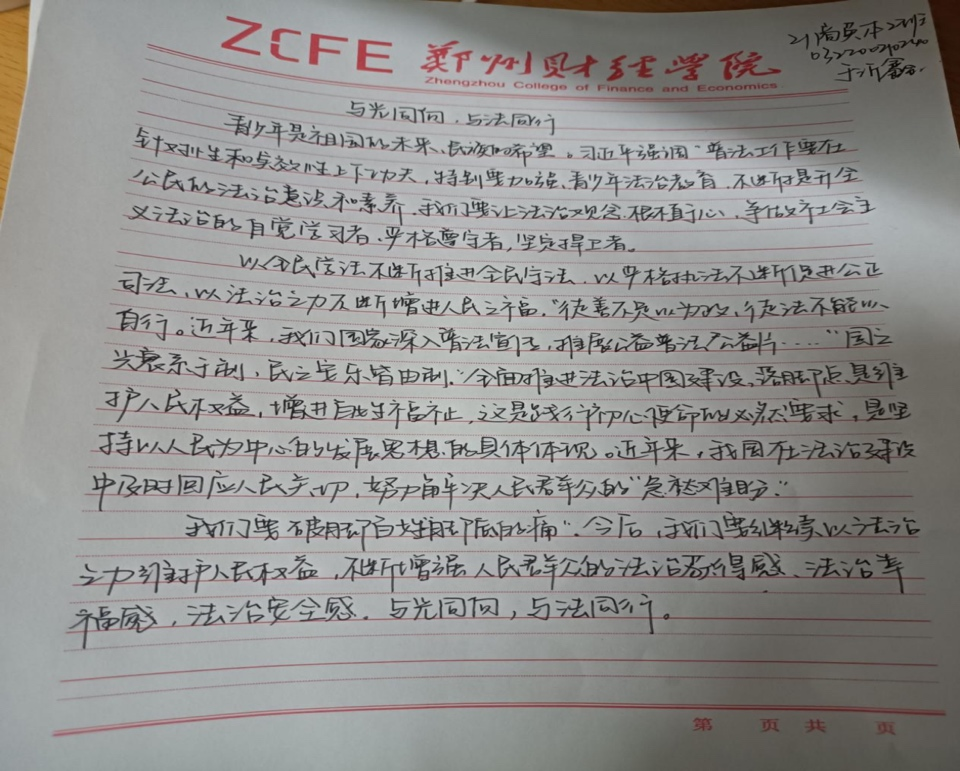 ZCFE 郑州财经学院
Zhengzhou College of Finance and Economics
与光同向，与法同行
青少年是祖国的未来、民族的希望。习近平强调"普法工作要在
针对性和实效性上下功夫，特别要加强青少年法治教育，不断提升全
公民的法治意识和素养，我们要让法治观念根植于心，争做社会主
义法治的自觉学习者、严格遵守者，坚定捍卫者。
以全民学法不断推进全民守法，以严格执法不断促进公正
司法，以法治之力不断增进人民之福，"徒善不足以为政，徒法不能以
自行。近年来，我们国家深入普法宣传，推展公益普法广公益片……"国之
兴衰系于制，民之安乐皆由制."全面推进法治中国建设，落脚点是维
护人民权益，增进民生福祉，这是践行初心使命的必然要求，是坚
持以人民为中心的发展思想的具体体现。近年来，我国在法治建设
中及时回应人民关切，努力解决人民群众的"急愁难盼."
我们要破解百姓的痛".今后，我们要继续以法治
之力维护人民权益，不断增强人民群众的法治获得感、法治幸
福感，法治安全感.与光同向，与法同行。
第 页 共 页